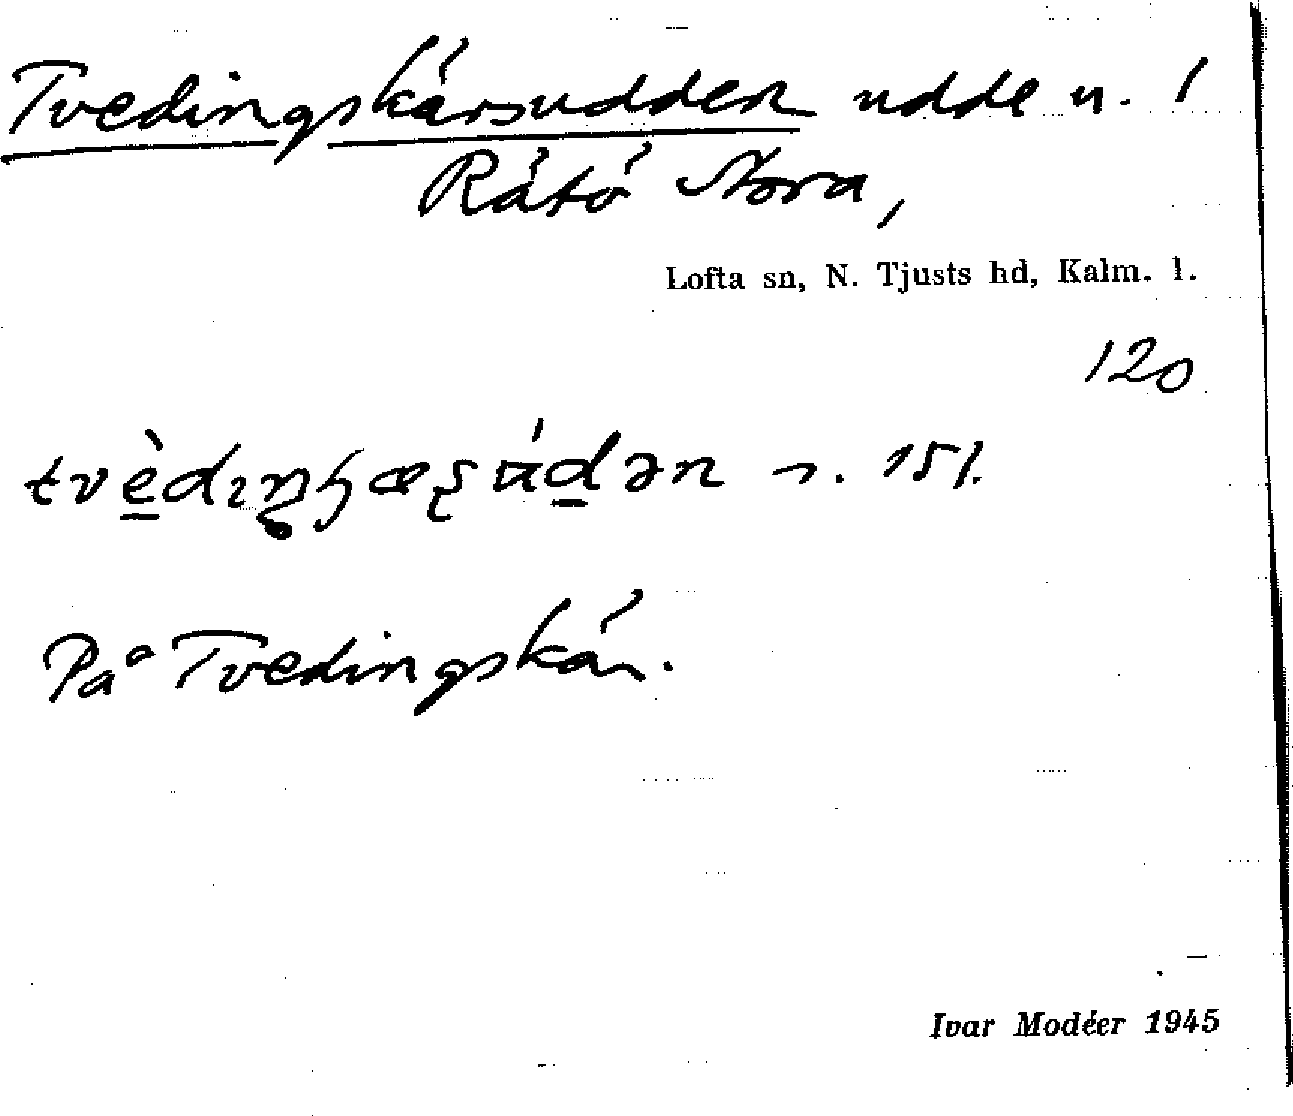 Tvedingskärsudden udde n. 1
Rätö Stora,
Lofta sn, N. Tjusts hd, Kalm. l.
120
151.
På Tvedingskär.
Ivar Modéer 1945